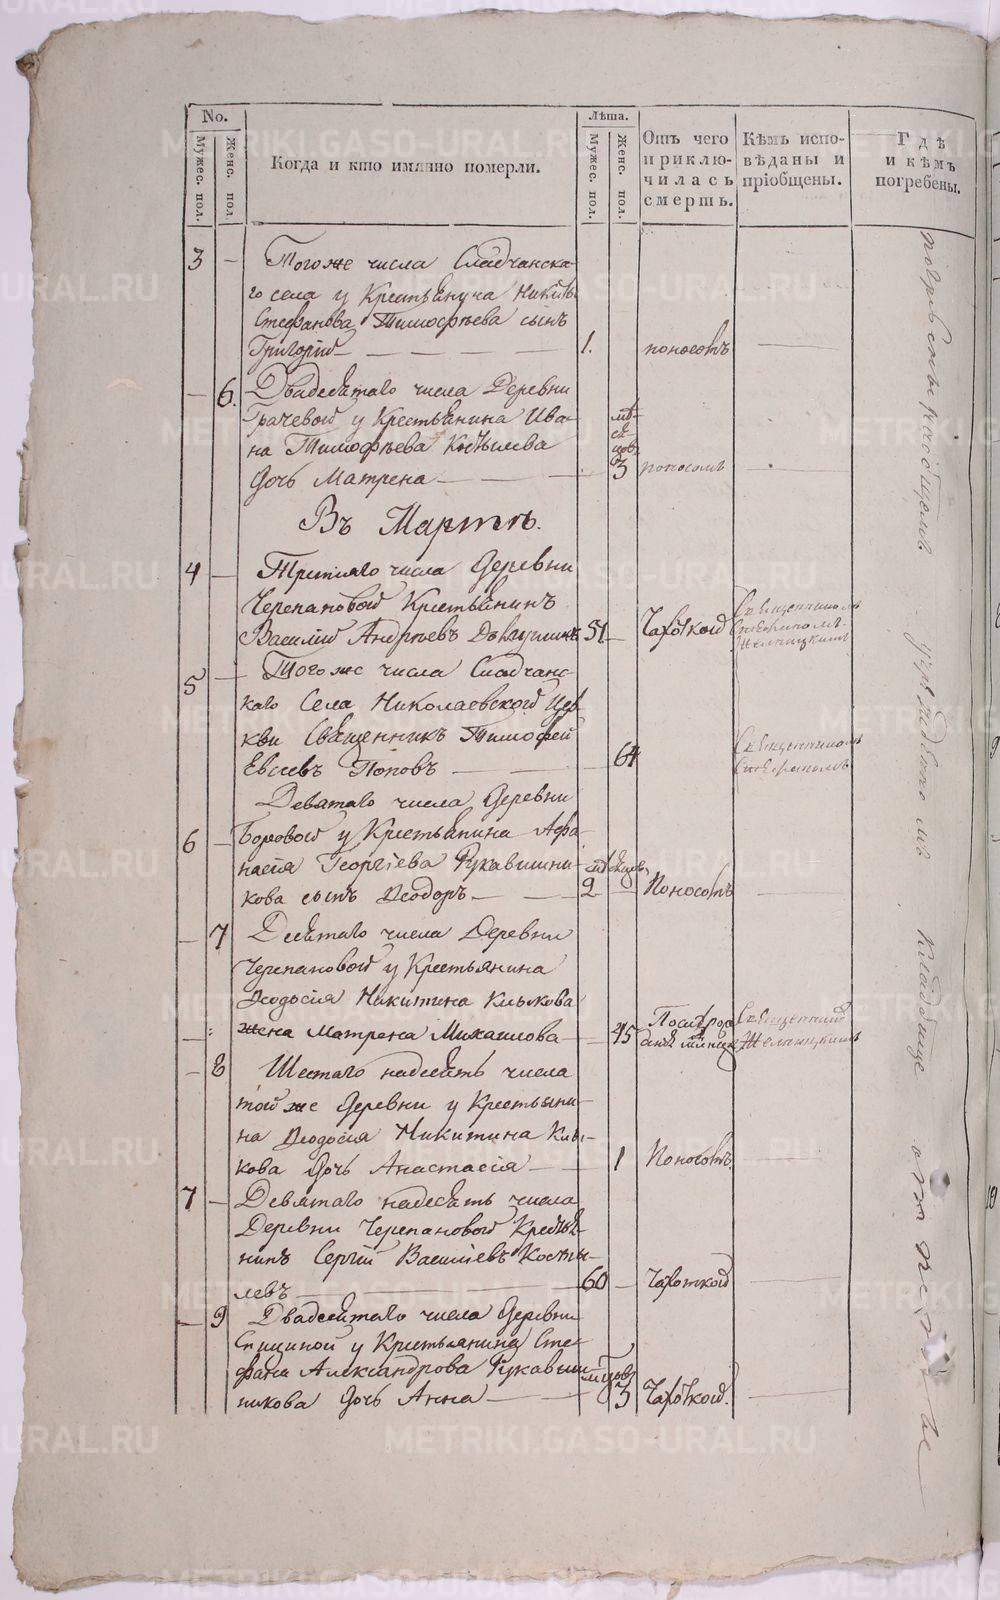 No.
Мужес. пол.
Женс. пол.
Когда и кто имянно померли.
Лѣта.
Мужес. пол.
Женс. пол.
Отъ чего
приклю-
чилась
смерть.
Кѣмъ испо-
вѣданы и
прiобщены.
Гдѣ
и кѣмъ
погребены.
3 — Того же числа Сладчанска-
го села у Крестьянина
Стефанова Тимофѣева сынъ
Григорій — 1. поносомъ —
— 6. Двадесятаго числа Деревни
Грачевой у Крестьянина Ива-
на Тимофѣева
дочь Матрена — мѣсяцовъ 3 поносомъ —
Въ Мартѣ.
4 — Третіяго числа Деревни
Черепановой Крестьянинъ
Василій Андрѣевъ 51 — Чахоткой Священникомъ
Стефаномъ
5 — Того же числа Сладчанс-
каго Села Николаевской Цер
кви Священникъ Тимофей
Евсѣевъ Поповъ — 64 Священникомъ
Стефаномъ
Девятаго числа Деревни
6 — Боровой у Крестьянина Афа-
насія Георгіева Рукавишни-
кова сынъ Ѳеодоръ — мѣсяцов 2 — Поносомъ —
— 7 Десятаго числа Деревни
Черепановой у Крестьянина
Ѳеодосія Никитина Клыкова
жена Матрена Михаилова — 45 Священник
— 8 Шестаго надесять числа
той же Деревни у Крестьяни-
на Ѳеодосія Никитина Клы-
кова дочь Анастасія — 1 Поносомъ —
7 — Девятаго надесять числа
Деревни Черепановой Крестья-
нинъ Сергій Василіевъ Косты-
левъ — 60 — Чахоткой —
— 9 Двадесятаго числа Деревни
Спициной у Крестьянина Сте-
фана Александрова Рукавиш-
никова дочь Анна — 3 Чахоткой —
погребены на общемъ кладбище
METRIKI.GASO-URAL.RU